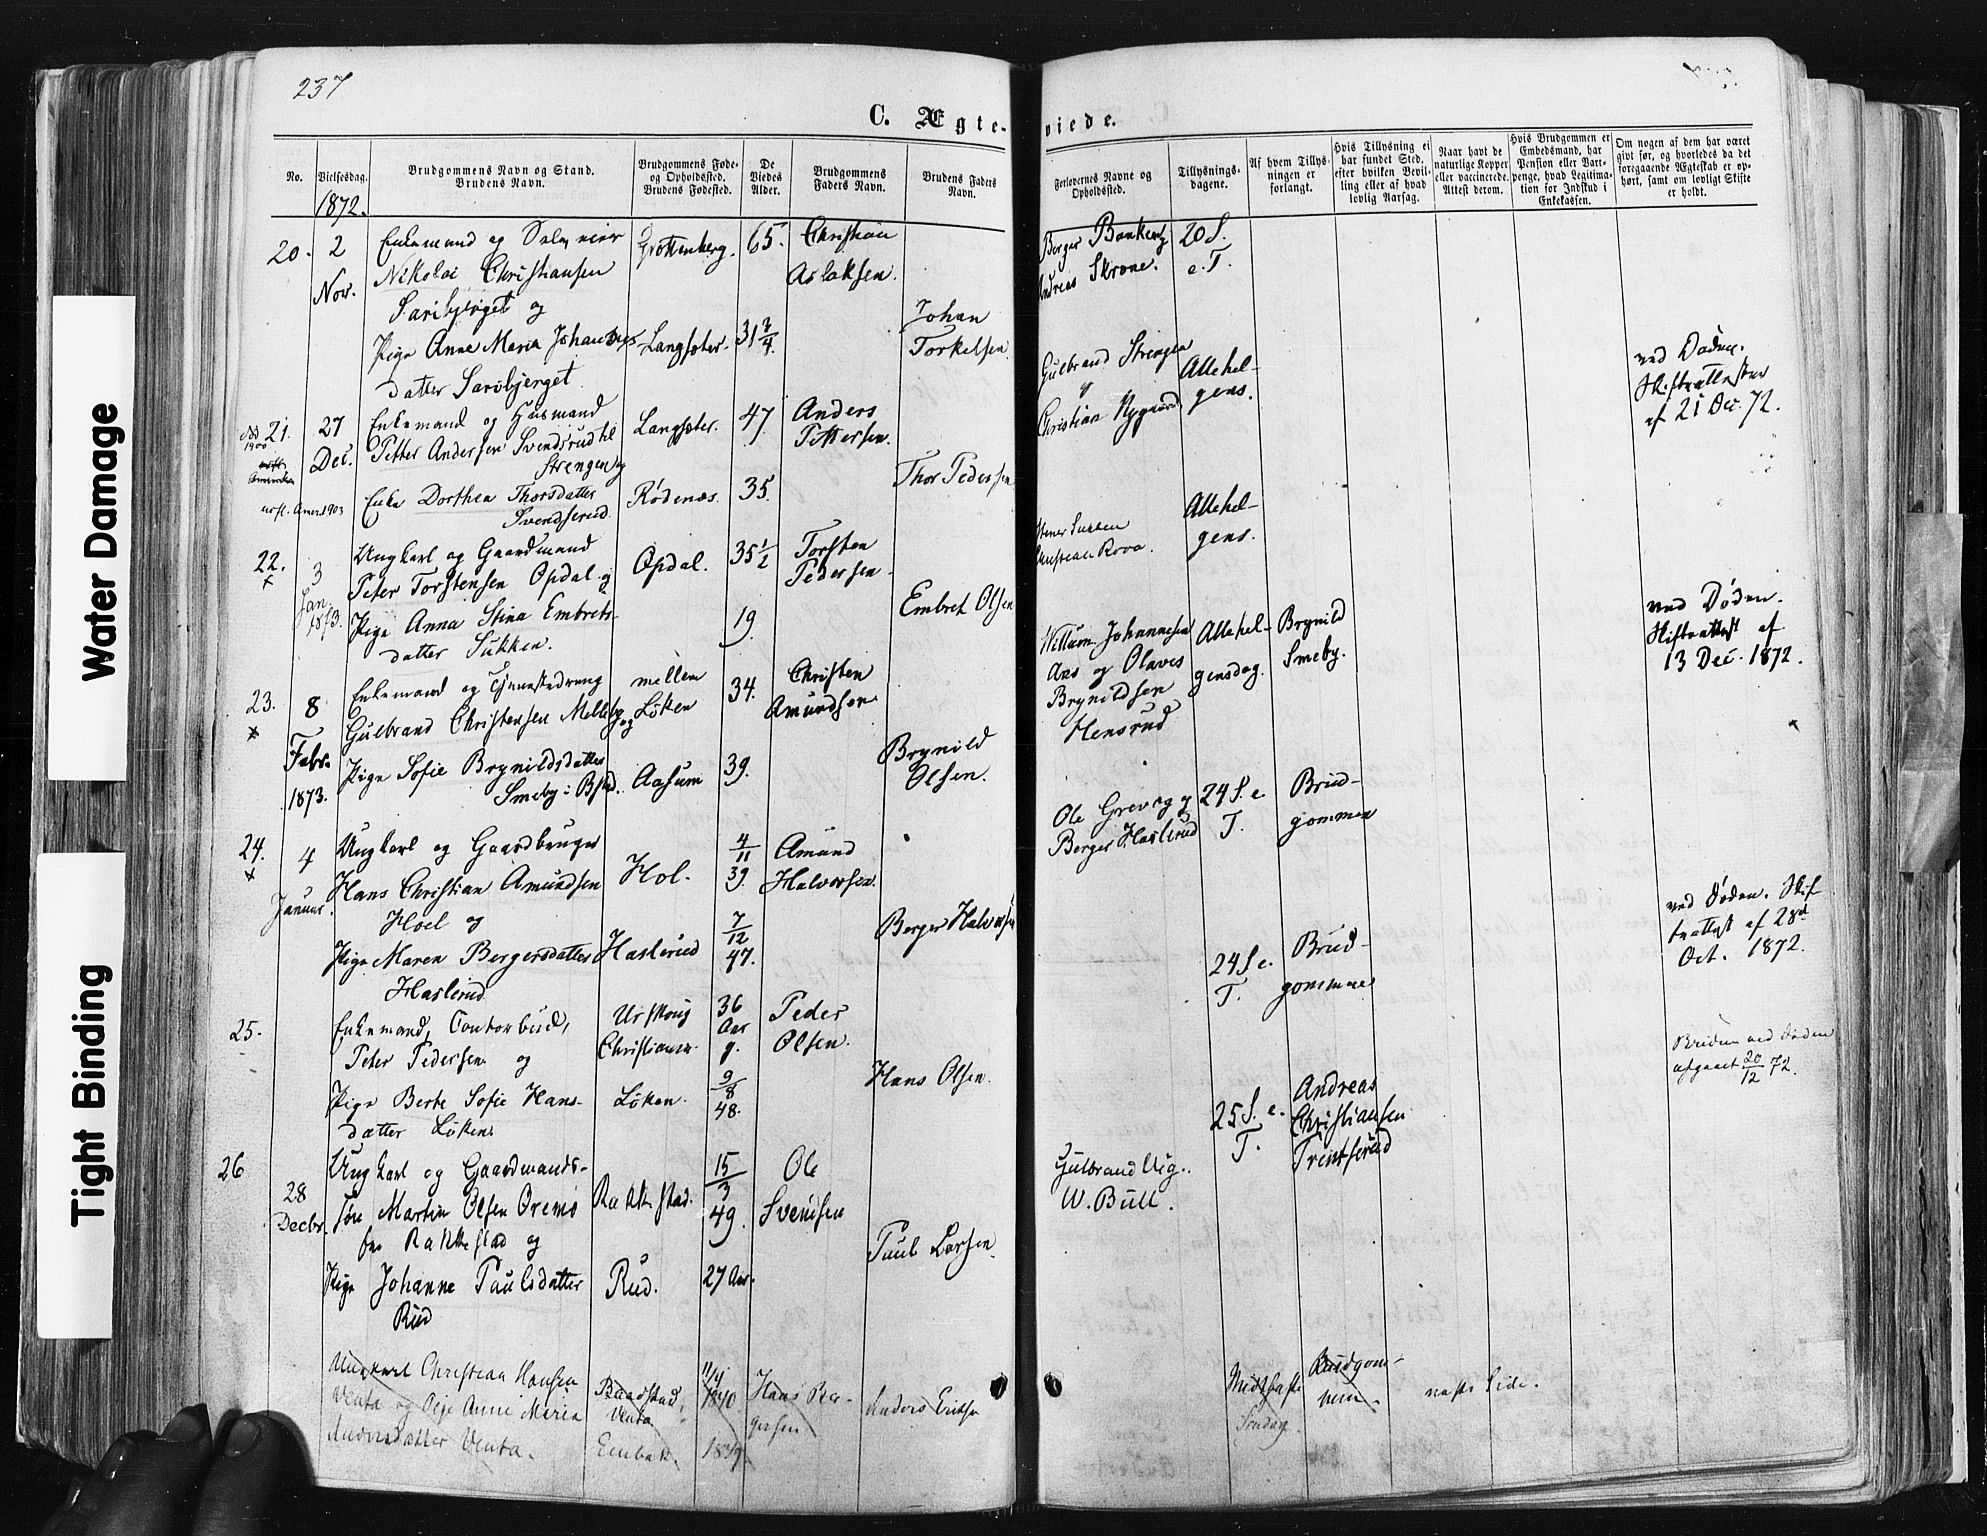 237
C. Ægte-
viede.
No.
Vielsesdag.
Brudgommens Navn og Stand.
Brudens Navn.
Brudgommens Føde-
og Opholdssted.
Brudens Fødested.
De
Viedes
Alder.
Brudgommens
Faders Navn.
Brudens Faders
Navn.
Forlovernes Navne og
Opholdssted.
Tillysnings-
dagene.
Af hvem Tillys-
ningen er
forlangt.
Hvis Tillysning ei
har fundet Sted,
efter hvilken Bevil-
ling eller af hvad
lovlig Aarsag.
Naar havt de
naturlige Kopper
eller vaccinerede.
Attest derom.
Hvis Brudgommen er
Embedsmand, har
Pension eller Vart-
penge, hvad Legitima-
tion for Indskud i
Enkekassen.
Om nogen af dem har været
gift før, og hvorledes da det
foregaaende Ægteskab er op-
hørt, samt om lovligt Skifte
er holdt.
1872.
20.
2
Nov.
Enkemand og
Nikolai Christiansen
og
Pige Anne Maria Johannes-
datter
Grøttenberg.
Langsæter.
65.
31 3/4.
Christian
Aslaksen.
Johan
Torkelsen
Berger
Andreas Skrone.
20 S.
e. T.
21.
27
Dec.
Enkemand og Husmand
Petter Andersen Svendsrud til
Strengen og
Enke Dorthea Thorsdatter
Svendserud.
Langsæter.
Rødenæs.
47
35.
Anders
Pettersen.
Thor Pedersen
Gulbrand Strengen
og
Christian Nygaard
Allehel-
gens.
ved Døden.
Skifteattester
af 21 Dec. 72.
1900
Amer. 1903
22.
3
Jan.
1873.
Ungkarl og Gaardmand
Peter Torstensen Opdal og
Pige Anna Stina Embrets-
datter Sukken.
Opdal.
35 1/2
19.
Torsten
Pedersen
Embret Olsen
Christian Rova.
Allehel-
gens.
23.
8
Febr.
1873.
Enkemand og
Gulbrand Christensen Melleby og
Pige Sofie Brynildsdatter
Smeby i
mellem
Løken
Aasum
34.
39.
Christen
Amundsen
Brynild
Olsen.
William Johannesen
Aas og Olaves
Brynildsen
Hensrud
Allehel-
gensdag.
Brynild
Smeby.
ved Døden.
Skifteattest af
13 Dec. 1872.
24.
4
Januar.
Ungkarl og Gaardbruger
Hans Christian Amundsen
Hoel og
Pige Maren Bergersdatter
Haslerud
Hol.
Haslerud
4/11
39.
7/12
47.
Amund
Halvorsen.
Berger Halvorsen
Ole Grevog og
Berger Haslerud
24 S. e.
T.
Brud-
gommen
25.
Enkemand, Contorbud,
Peter Pedersen og
Pige Berte Sofie Hans-
datter Løken.
Urskoug
Christiania.
Løken.
36
Aar
g.
9/8
48.
Peder
Olsen.
Hans Olsen.
24 S. e.
T.
Brud-
gommen
ved Døden. Skif-
teattest af 28de
Oct. 1872.
26
28
Decbr.
Ungkarl og Gaardmands-
søn Martin Olsen Oremo
fra Rakkestad og
Pige Johanne Paulsdatter
Rud
Rakkestad.
Rud.
15/3
49.
27 Aar.
Ole
Svendsen
Paul Larsen.
Gulbrand Vig.
W. Bull.
25 S. e.
T.
Andreas
Christiansen
afgaaet 20/12 72.
Ungkarl Christian Hansen
Venta og Pige Anne Maria
Andersdatter Venta.
Baadstad,
Venta
1840
Hans Ber-
gersen
Anders Eriksen
Midtfaste
Søndag.
Brudgom-
men.
næste Side.
Water Damage
Tight Binding